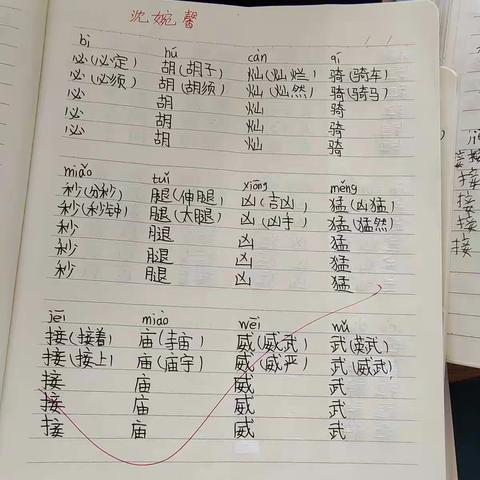 沈婉馨
bì hú càn qí
必(必定) 胡(胡子) 灿(灿烂) 骑(骑车)
必(必须) 胡(胡须) 灿(灿然) 骑(骑马)
必 胡 灿 骑
必 胡 灿 骑
必 胡 灿 骑
miǎo tuǐ xiōng měng
秒(分秒) 腿(伸腿) 凶(吉凶) 猛(凶猛)
秒(秒钟) 腿(大腿) 凶(凶手) 猛(猛然)
秒 腿 凶 猛
秒 腿 凶 猛
秒 腿 凶 猛
jēi miào wēi wǔ
接(接着) 庙(寺庙) 威(威武) 武(英武)
接(接上) 庙(庙宇) 威(威严) 武(威武)
接 庙 威 武
接 庙 威 武
接 庙 威 武
接
接
接
接